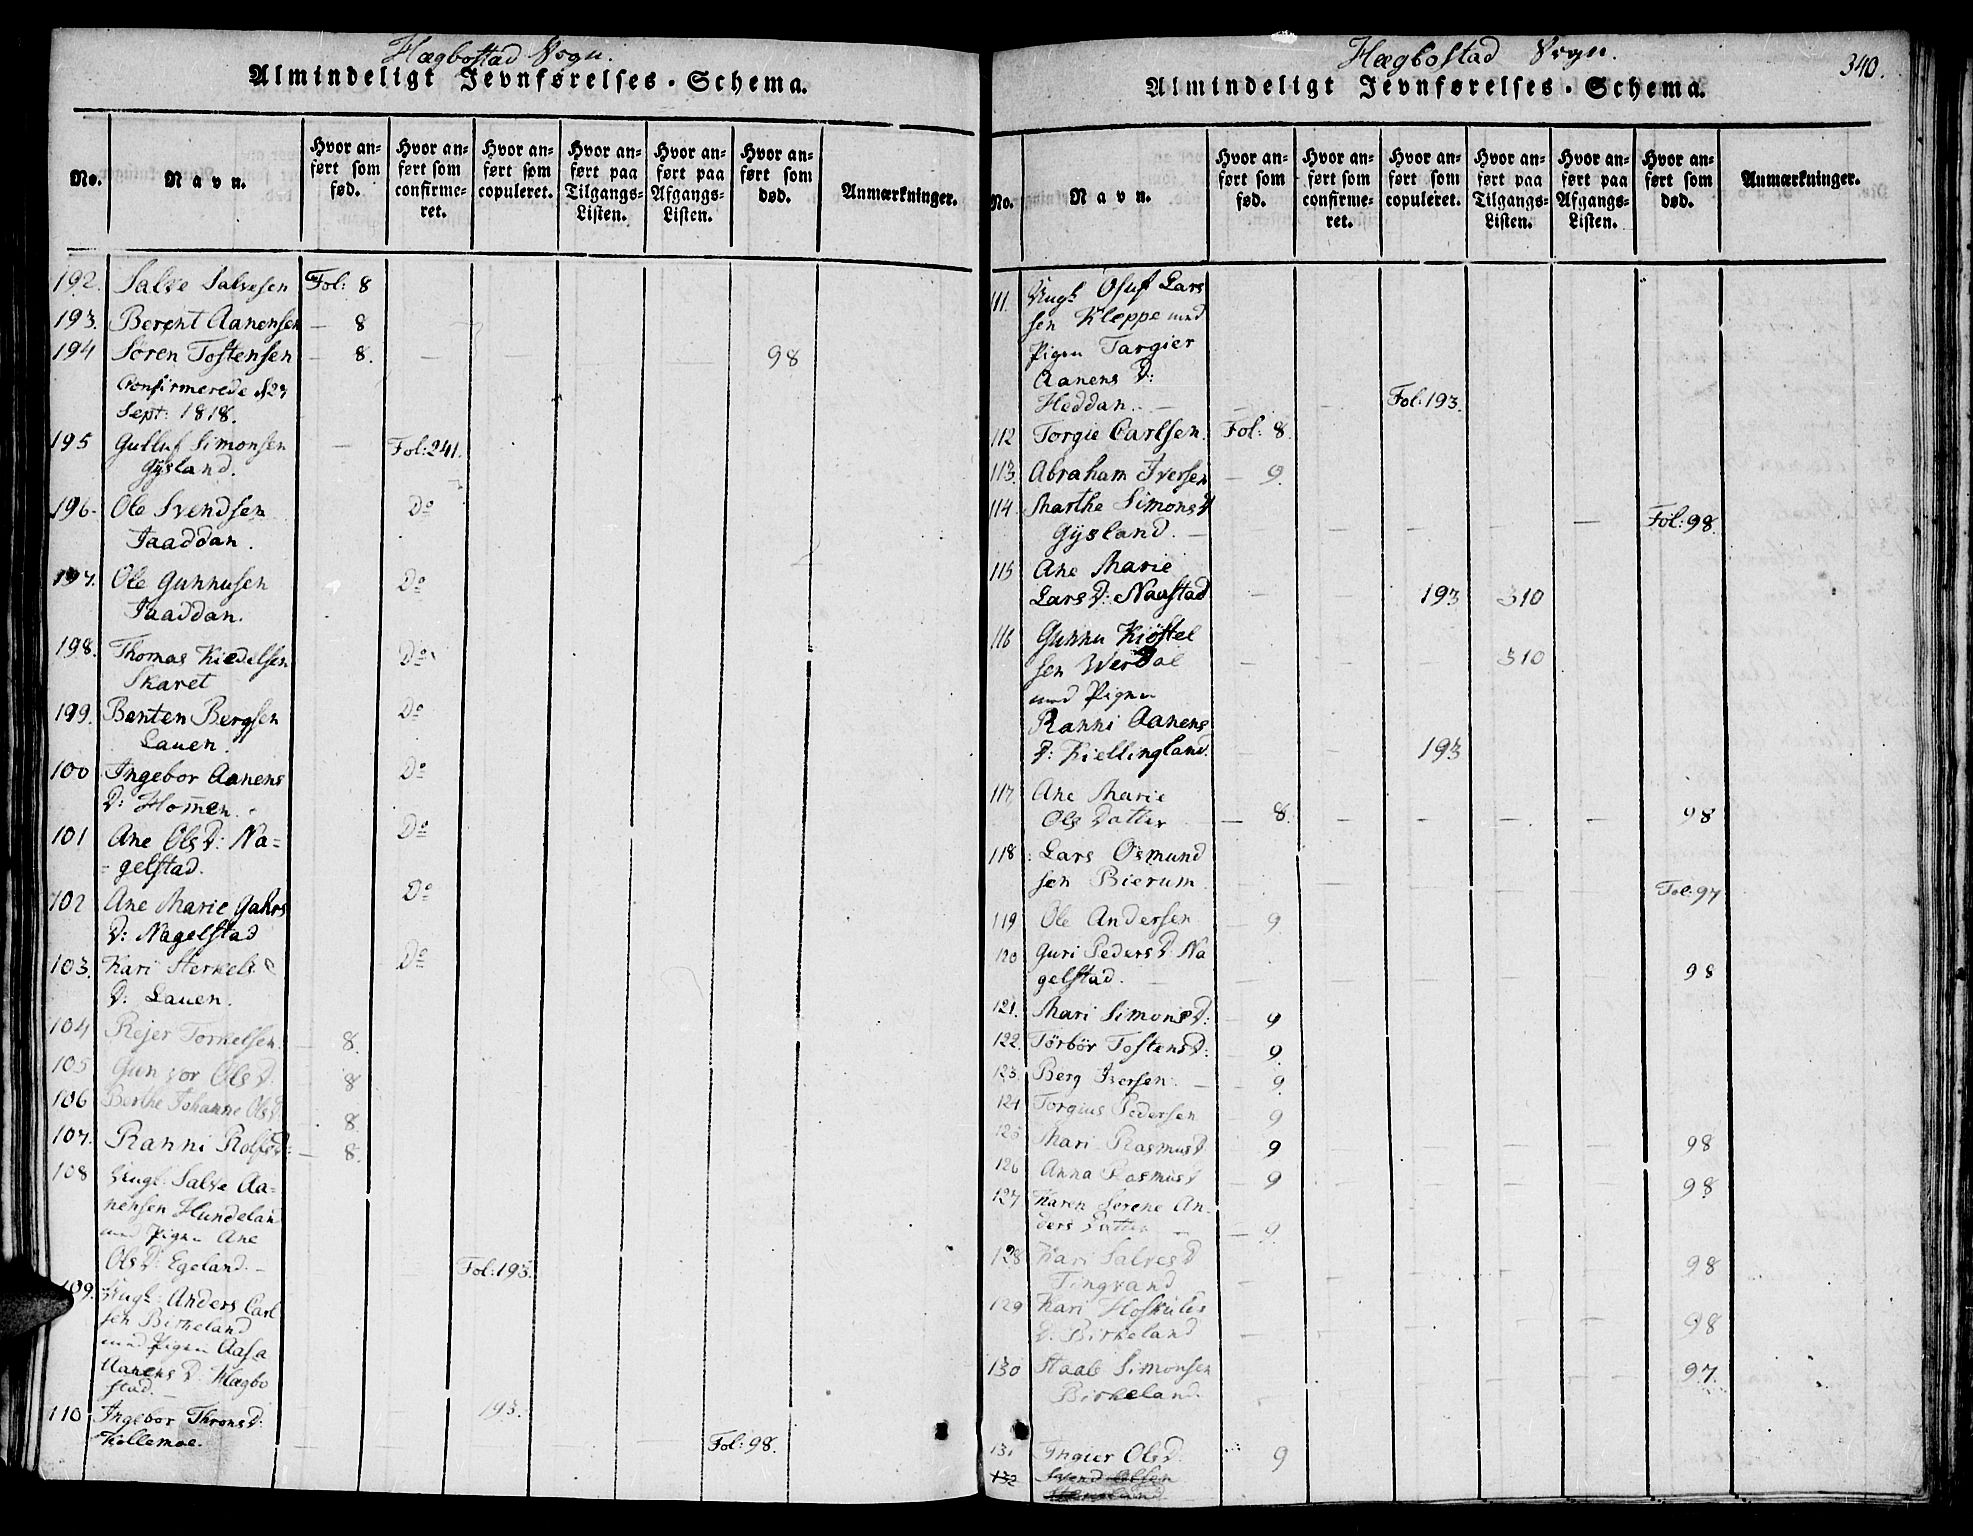 Hægbostad Sogn.
Almindeligt Jevnførelses-Schema.
No.
Navn.
Hvor an-
ført som
fød.
Hvor an-
ført som
confirme-
ret.
Hvor an-
ført som
copuleret.
Hvor an-
ført paa
Tilgangs-
Listen.
Hvor an-
ført paa
Afgangs-
Listen.
Hvor an-
ført som
død.
Anmærkninger.
192. Salve Salvesen Fol: 8
193. Berent Aanensen — 8
194 Sören Tostensen — 8. — 98
Confirmerede d 23
Sept: 1818.
195 Gulluf Simonsen — Fol: 241.
Gysland.
196. Ole Svendsen Do
Jaaddan.
197. Ole Gunnusen Do
Jaaddan.
198. Thomas Kiedelsen Do
Skaret
199. Benten Bergsen Do
Lauen.
100 Ingebor Aanens Do
D: Homen.
101 Ane Ols D: Na= Do
=gelstad.
102 Ane Marie Gahrs Do
D: Nagelstad
103. Kari Sterkels Do
D: Lauen.
104 Rejer Torkelsen. — 8.
105 Gunvor Ols D. 8
106 Berthe Johanne Ols D. 8.
107. Ranni Rolfs D: — 8.
108 Ungk: Salve Aa=
nensen Hundeland
med Pigen Ane
Ols D: Egeland. — Fol: 193.
109. Ungk: Anders Carl
sen Birkeland
med Pigen Aasa
Aanens D. Hægbo
stad. — 193.
110 Ingebor Throns D:
Kollemoe. Fol: 98.
Hægbostad Sogn.
340.
Almindeligt Jevnførelses-Schema.
No.
Navn.
Hvor an-
ført som
fød.
Hvor an-
ført som
confirme-
ret.
Hvor an-
ført som
copuleret.
Hvor an-
ført paa
Tilgangs-
Listen.
Hvor an-
ført paa
Afgangs-
Listen.
Hvor an-
ført som
død.
Anmærkninger.
111. Ungk Osuf Lars
sen Kleppe med
Pigen Targier
Aanens D:
Heddan. — Fol: 193.
112 Torgie Carlsen. Fol: 8.
113. Abraham Iversen — 9.
114 Marthe Simons D
Gysland. — Fol: 98.
115 Ane Marie
Lars D: Naustad — 193 310
116 Gunnu Kiöstel
sen Werdal — 310
med Pigen
Ranni Aanens
D: Kiellingland. — 193
117 Ane Marie
Ols Datter — 8. — 98
118: Lars Osmund
sen Bierum. Fol: 97
119 Ole Andersen — 9
120 Guri Peders D: Na
gelstad. — 98
121. Mari Simons D: — 9
122. Törbör Tostens D: — 9.
123. Berg Iversen. — 9.
124 Torgius Pedersen 9
125 Mari Rasmus D 9 98
126 Anna Rasmus D — 9 98
127 Karen Serene An.
ders Datter — 9.
128 Kari Salves D 98
Tingvand
129 Kari Hoskulds
D: Birkeland — 98
130 Staale Simonsen 97.
Birkeland.
131 Ingier Ols D. 9
132 Svend Olsen